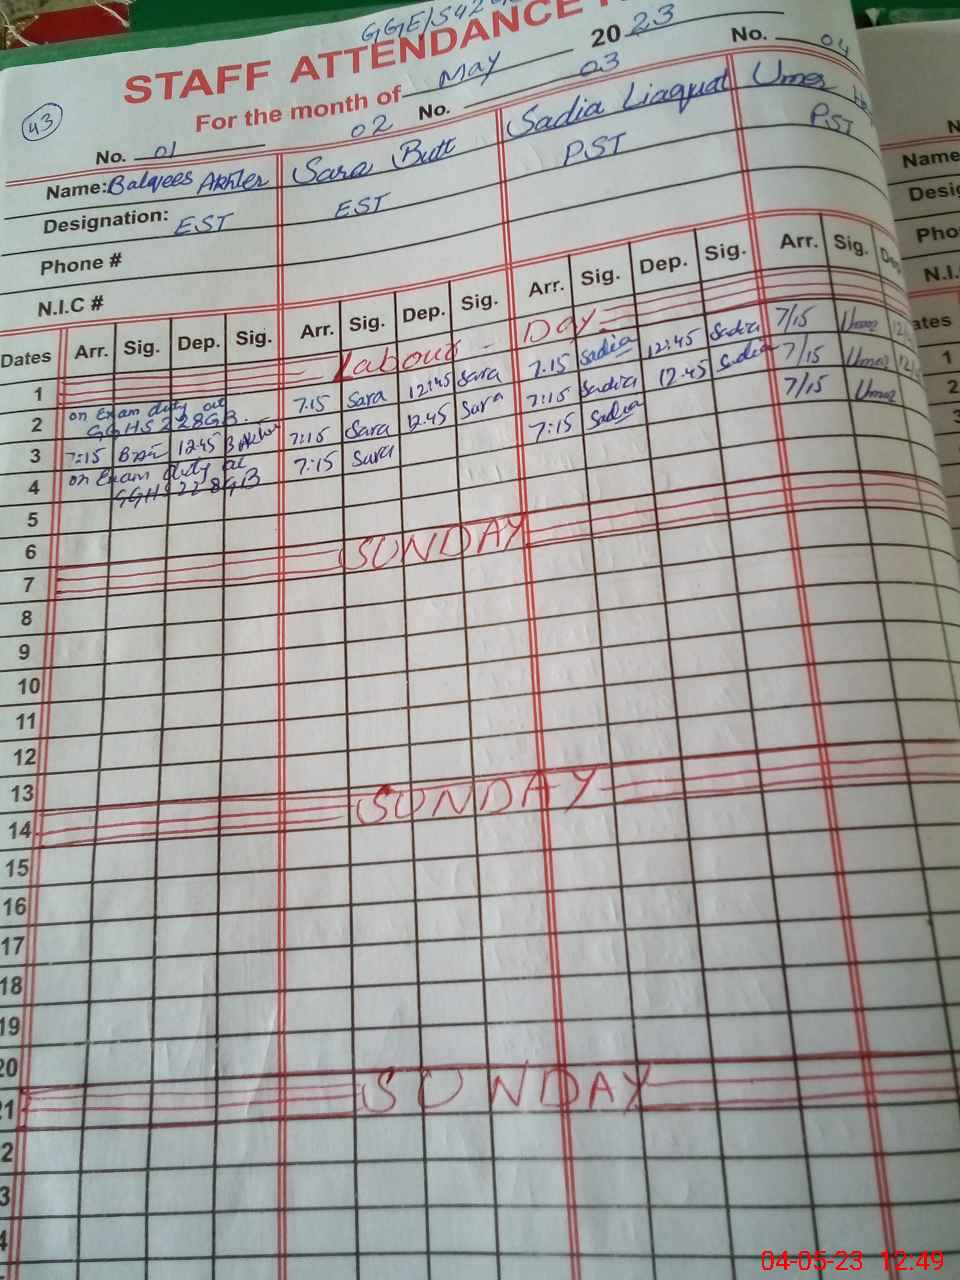 GGE/S42
STAFF ATTENDANCE
43
For the month of May 2023
No. 01
No. 02
03
No. 04
Name: Balqees Akhter
Sara Butt
Sadia Liaquat
Umer
Designation: EST
EST
PST
PST
Phone #
N.I.C #
Dates Arr. Sig. Dep. Sig. Arr. Sig. Dep. Sig. Arr. Sig. Dep. Sig. Arr. Sig. Dep
1 Labour - Day
2 on Exam duty at GGHS 228GB. 7:15 Sara 12:45 Sara 7:15 Sadia 12:45 Sadia 7/15 Umer
3 7:15 12:45 B Akhter 7:15 Sara 12:45 Sara 7:15 Sadia 12.45 Sadia 7/15 Umer
4 on Exam duty at GGHS 228GB 7:15 Sara 7:15 Sadia 7/15 Umer
5
6
7 SUNDAY
8
9
10
11
12
13
14 SUNDAY
15
16
17
18
19
20
21 SUNDAY
2
3
4
N
Name
Desig
Phon
N.I.
ates
1
2
3
04-05-23 12:49